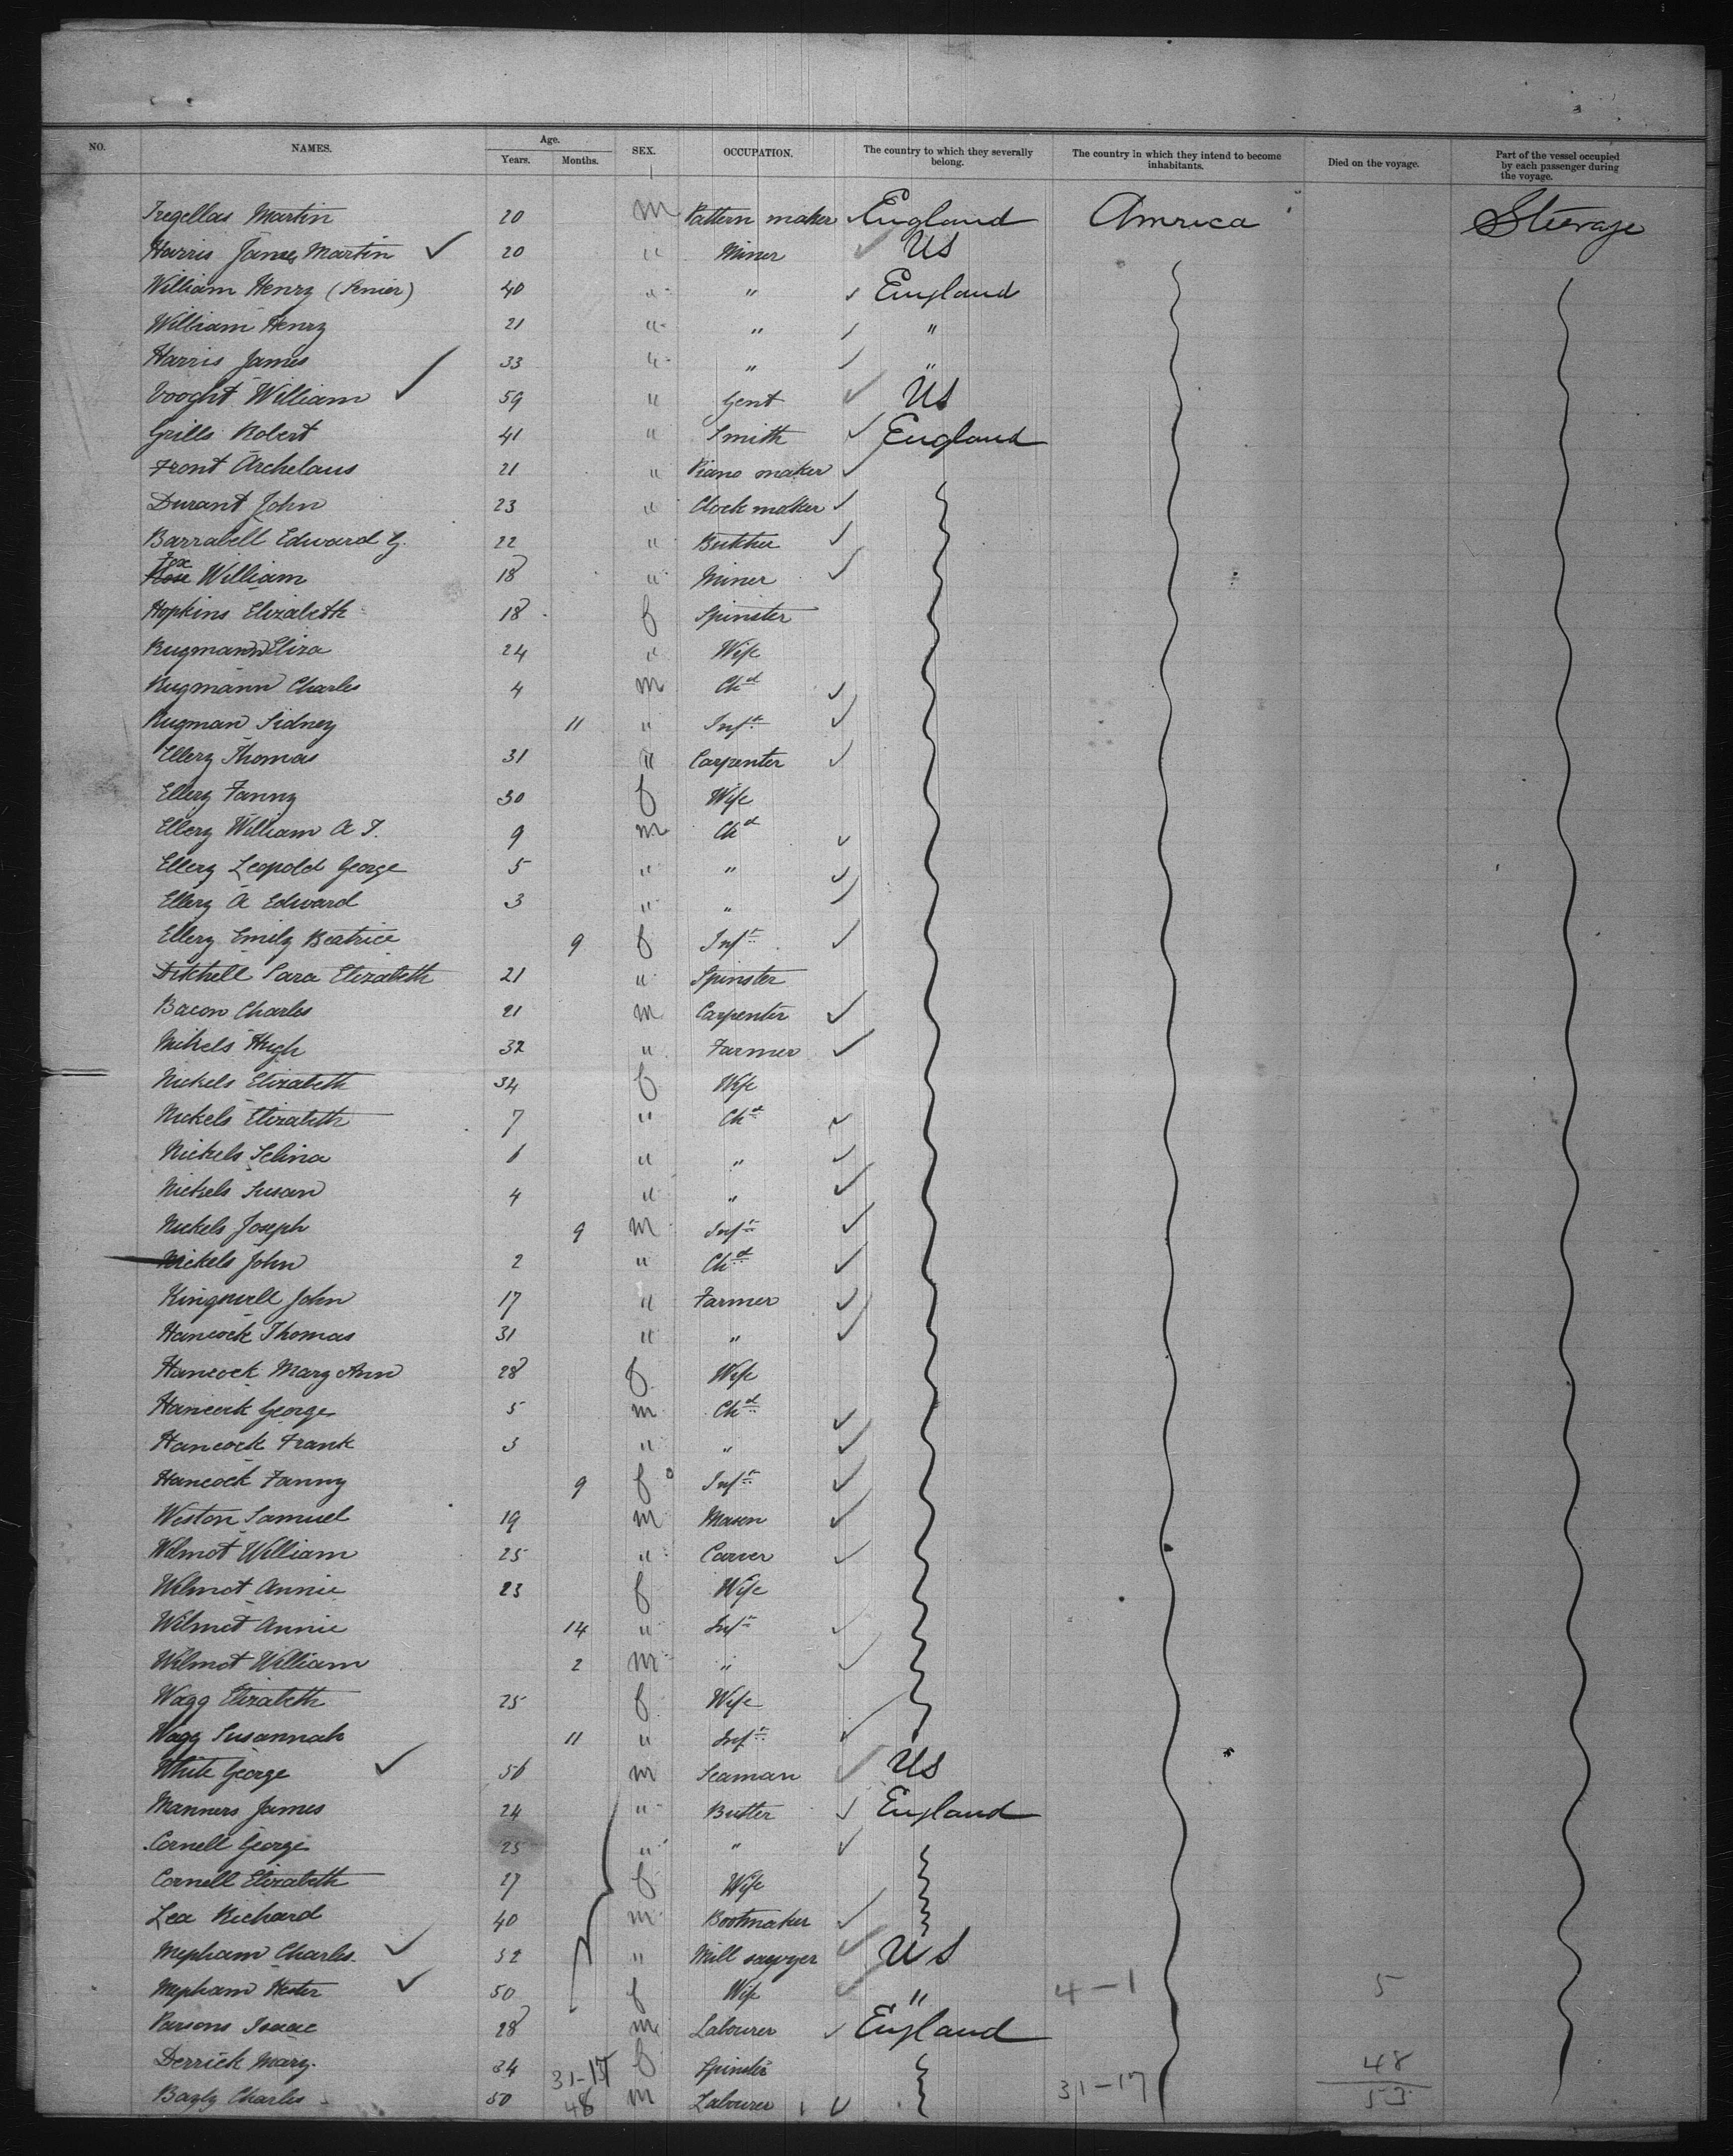 NO. NAMES. Age. Years. Months. SEX. OCCUPATION. The country to which they severally belong. The country in which they intend to become inhabitants. Died on the voyage. Part of the vessel occupied by each passenger during the voyage.
Tregellas Martin 20 m Pattern maker England Amrica Steerage
Harris James Martin 20 " Miner US
William Henry (Senier) 40 " " England
William Henry 21 " " "
Harris James 33 " " "
Vooght William 59 " Gent US
Grills Robert 41 " Smith England
Front Archelaus 21 " Piano maker
Durant John 23 " Clock maker
Barrabell Edward G. 22 " Butcher
Fox William 18 " Miner
Hopkins Elizabeth 18 f Spinster
Rugmann Eliza 24 " Wife
Rugmann Charles 4 m Chd
Rugman Sidney 11 " Inft
Ellery Thomas 31 " Carpenter
Ellery Fanny 30 f Wife
Ellery William A T. 9 m Chd
Ellery Leopold George 5 " "
Ellery A Edward 3 " "
Ellery Emily Beatrice 9 f Inft
Ditchell Sara Elizabeth 21 " Spinster
Bacon Charles 21 m Carpenter
Nikels Hugh 32 " Farmer
Nickels Elizabeth 34 f Wife
Nickels Elizabeth 7 " Chd
Nickels Selina 6 " "
Nickels Susan 4 " "
Nickels Joseph 9 m Inft
Nickels John 2 " Chd
Kingwell John 17 " Farmer
Hancock Thomas 31 " "
Hancock Mary Ann 28 f Wife
Hancock George 5 m Chd
Hancock Frank 3 " "
Hancock Fanny 9 f Inft
Weston Samuel 19 m Mason
Wilmot William 25 " Carver
Wilmot Annie 23 f Wife
Wilmot Annie 14 " Inft
Wilmot William 2 m "
Wagg Elizabeth 25 f Wife
Wagg Susannah 11 " Inft
White George 56 m Seaman US
Manners James 24 " Butler England
Cornell George 25 " "
Cornell Elizabeth 27 f Wife
Lea Richard 40 m Bootmaker
Mepham Charles 52 " Mill sawyer US
Mepham Hester 50 f Wife " 4-1 5
Parsons Isaac 28 m Labourer England
Derrick Mary. 24 31-17 f Spinster 48
Bagly Charles 50 48 m Labourer 31-17 53